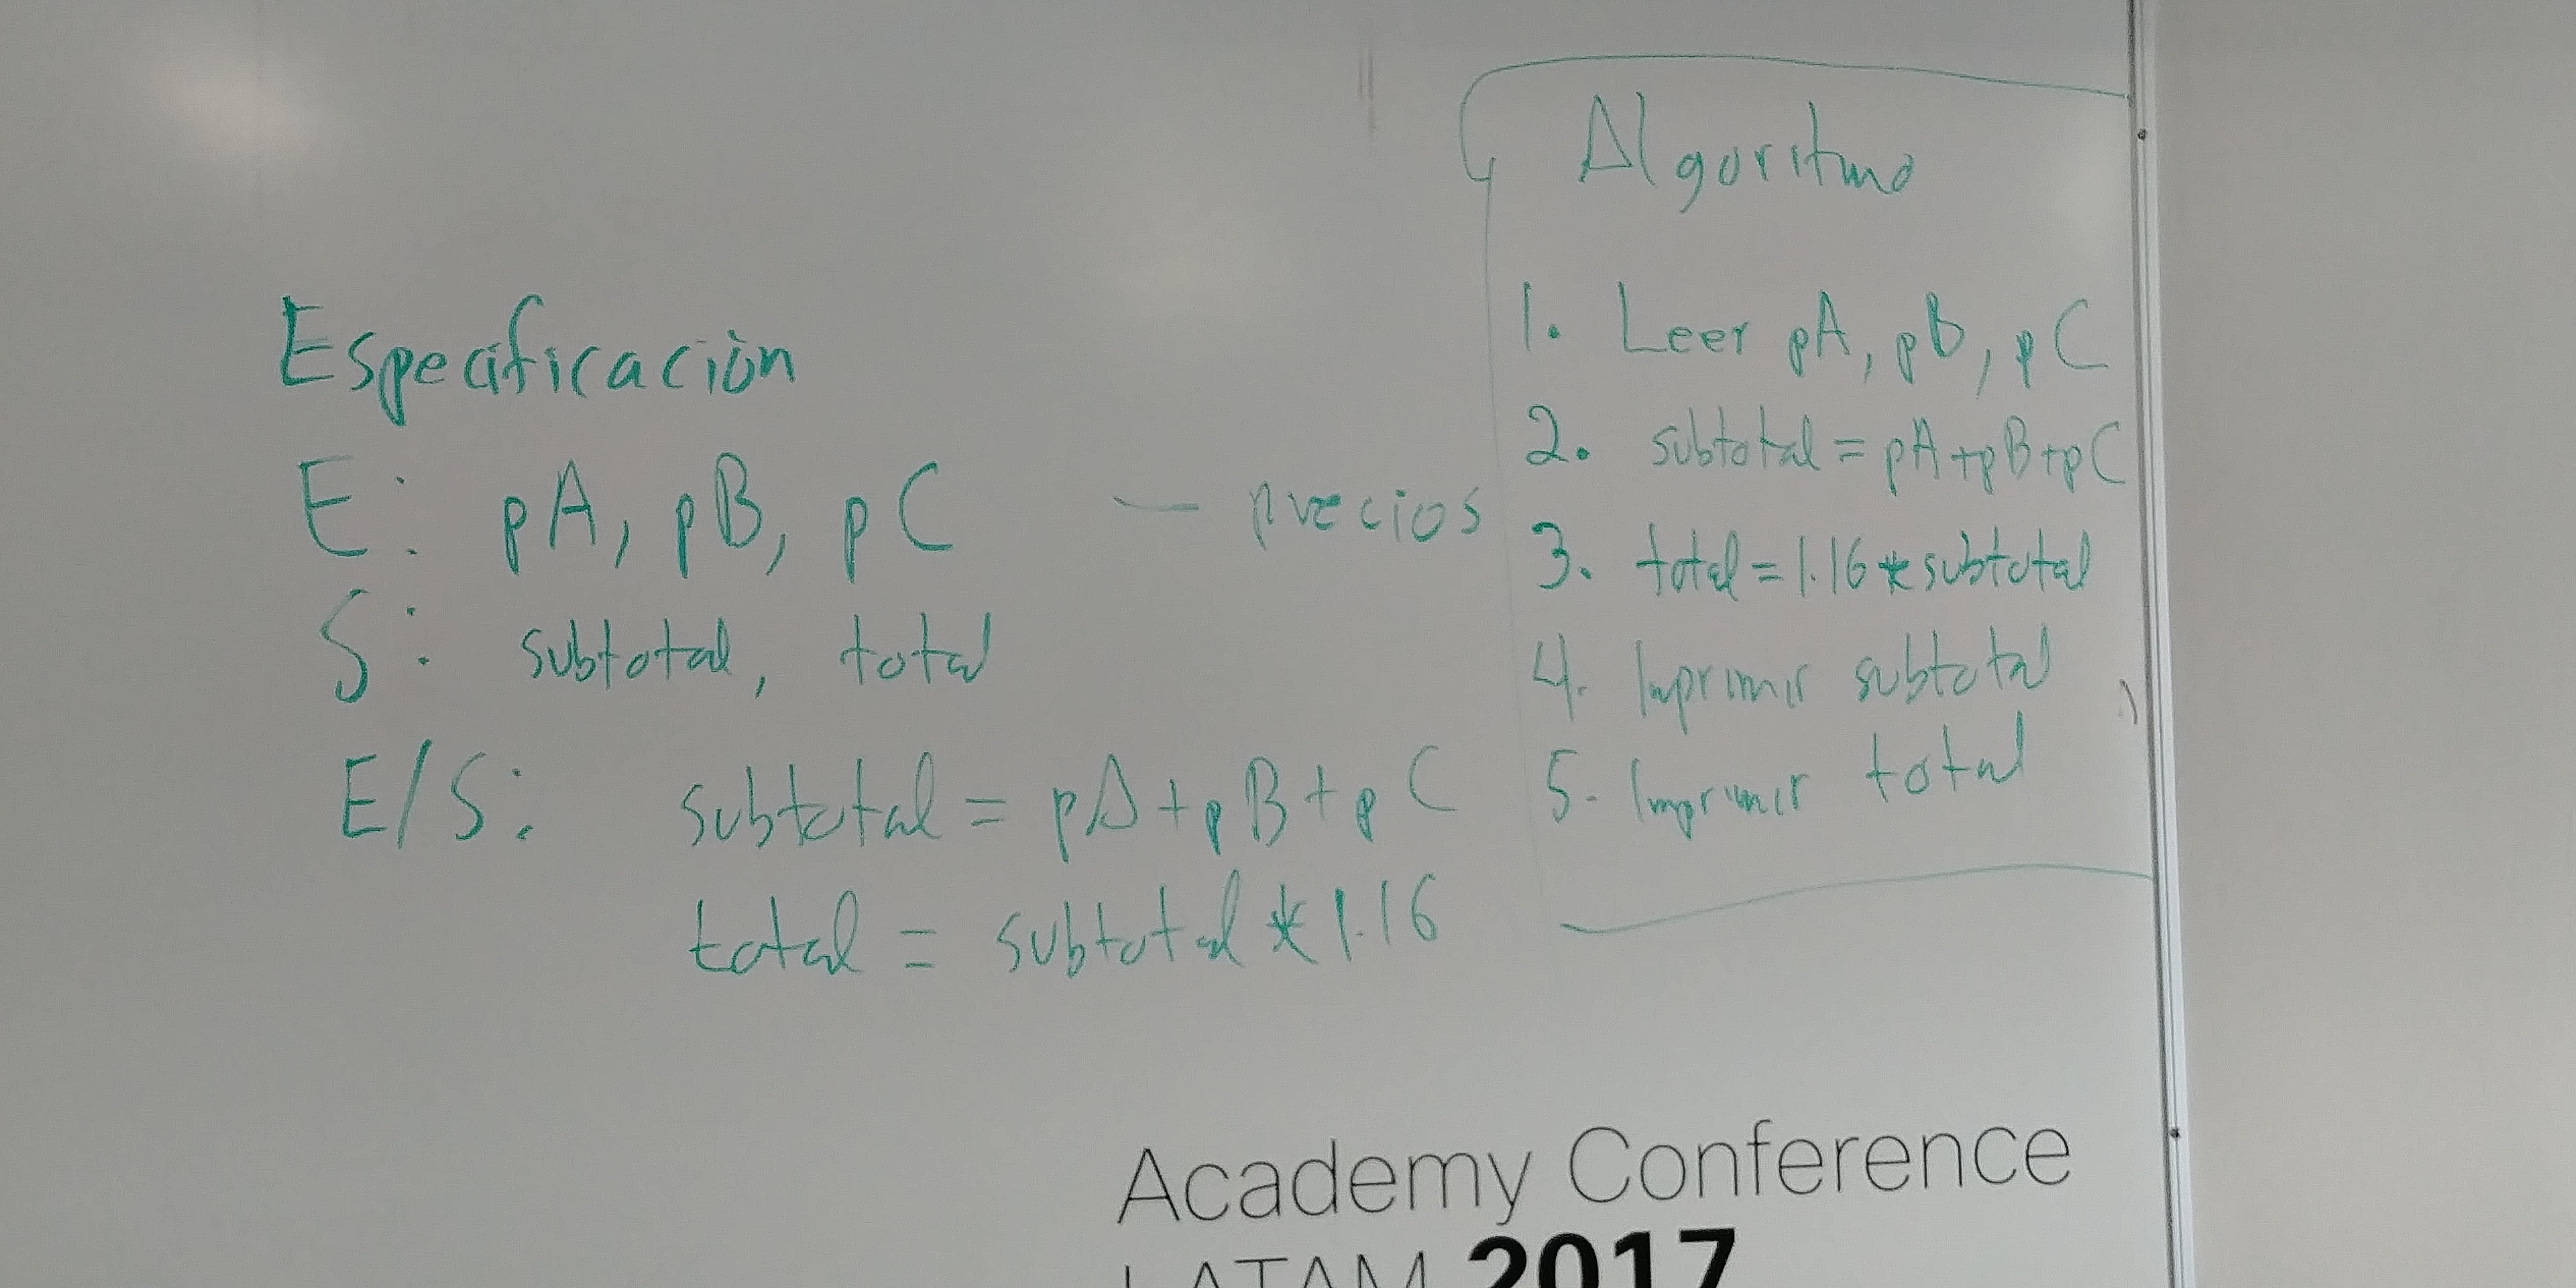 Especificación
E: pA, pB, pC — precios
S: subtotal, total
E/S: subtotal = pA+pB+pC
total = subtotal * 1.16
Algoritmo
1. Leer pA, pB, pC
2. subtotal = pA+pB+pC
3. total = 1.16 * subtotal
4. Imprimir subtotal
5. Imprimir total
Academy Conference
LATAM 2017